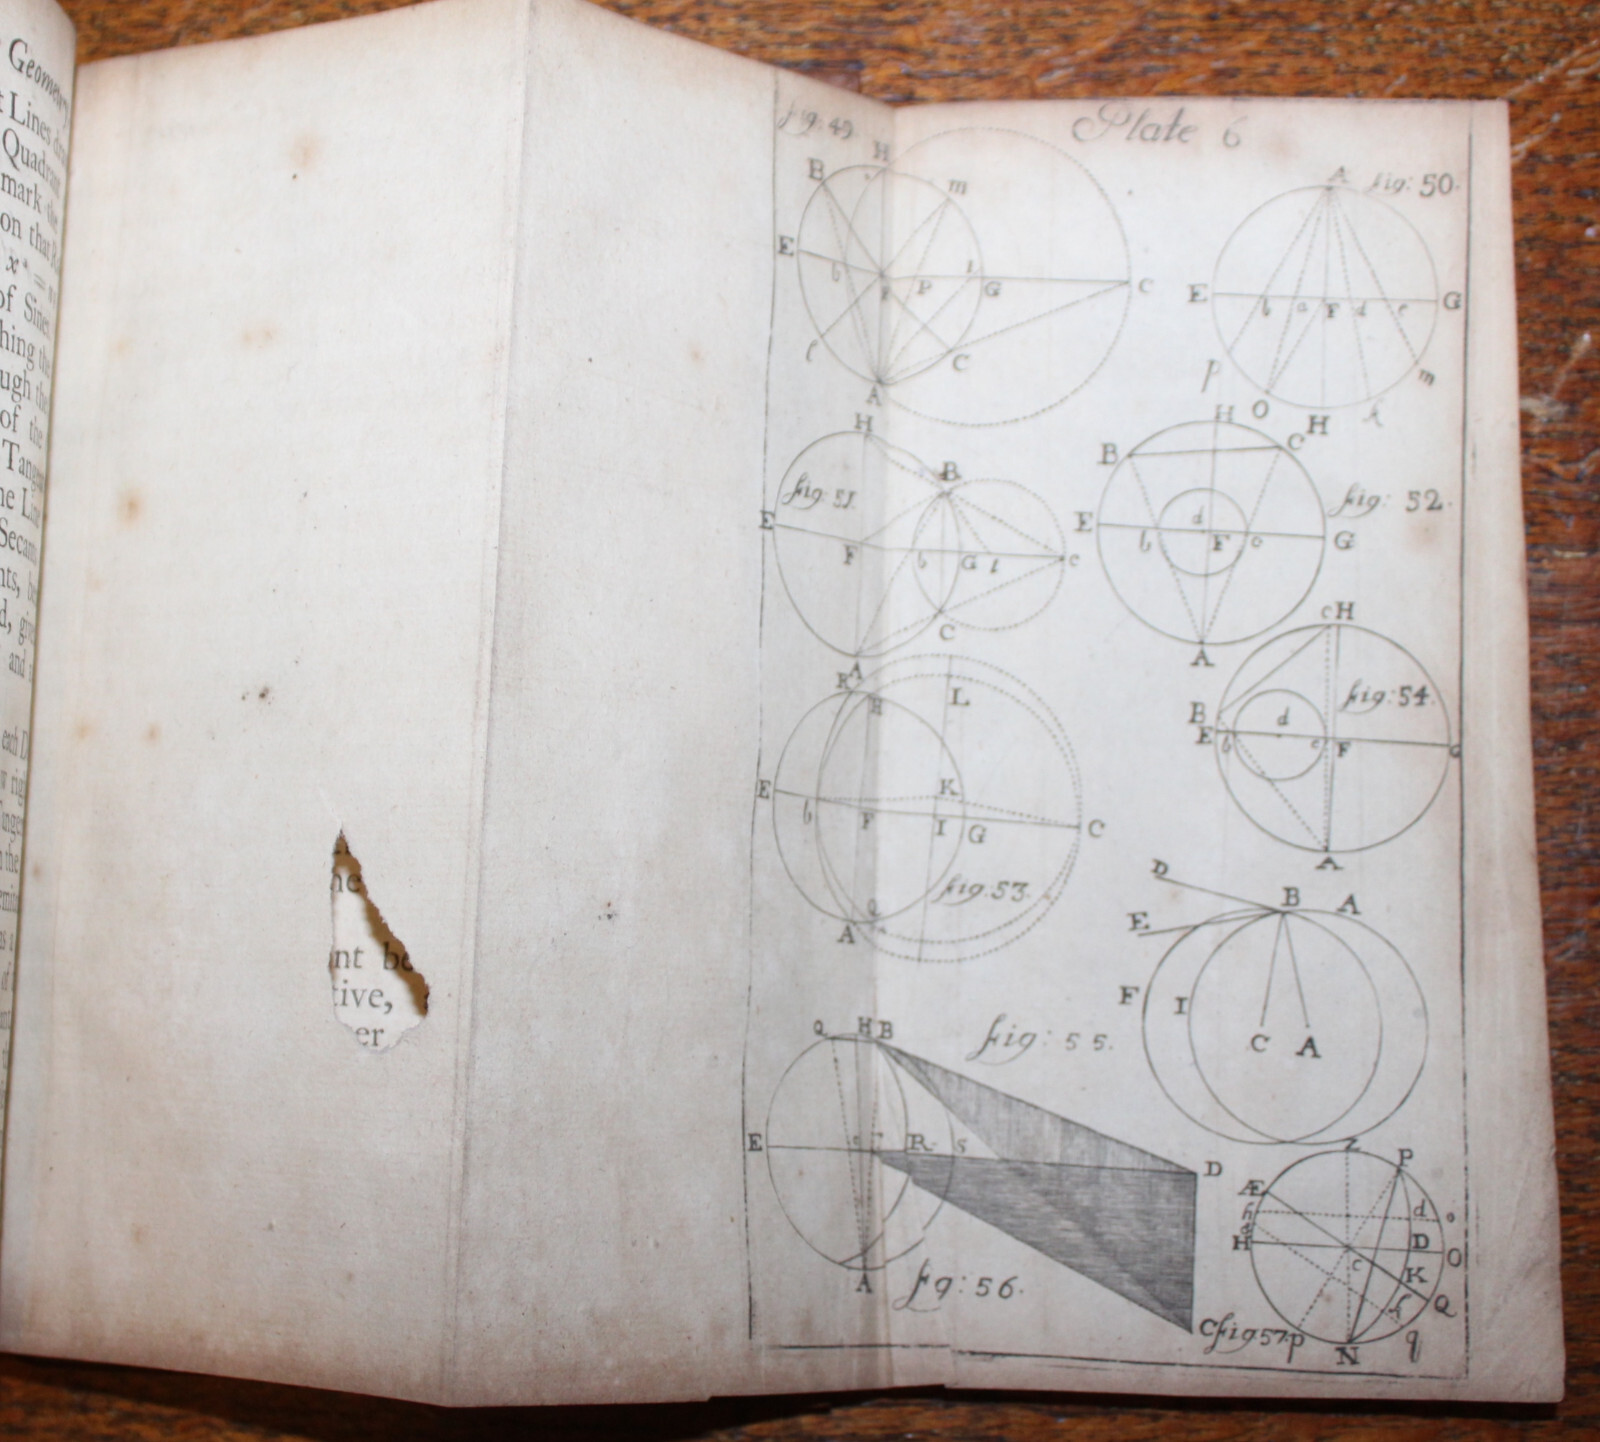 Geometry
Lines
Quadrant
mark the
on that
of Sines
of the
he Line
and
each D
he
nt be
tive,
er
Plate 6
fig: 49
H
B
m
E
b
F
P
G
C
l
C
A
fig: 50.
A
E
b
a
F
d
e
G
p
O
H
m
fig: 51.
H
B
E
F
b
G
l
c
C
A
fig: 52.
H
B
C
E
b
d
F
c
G
A
fig. 53.
L
H
E
b
F
K
I
G
C
Q
A
fig: 54.
c H
B
E
b
d
c
F
G
A
fig: 55.
D
B
A
E
F
I
C
A
fg: 56.
Q
H
B
E
R
S
D
A
C
fig 57.
Z
P
Æ
h
d
o
H
D
O
c
K
Q
p
N
q